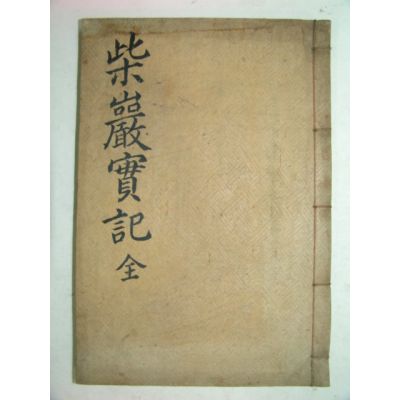 柴巖實記 全